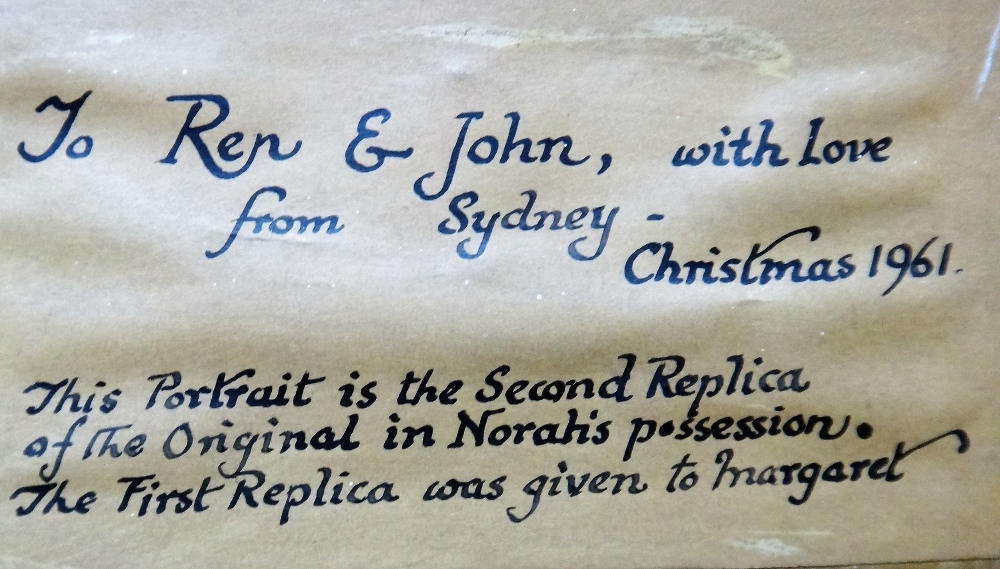 To Ren & John, with love
from Sydney -
Christmas 1961.
This Portrait is the Second Replica
of the Original in Norah's possession.
The First Replica was given to Margaret